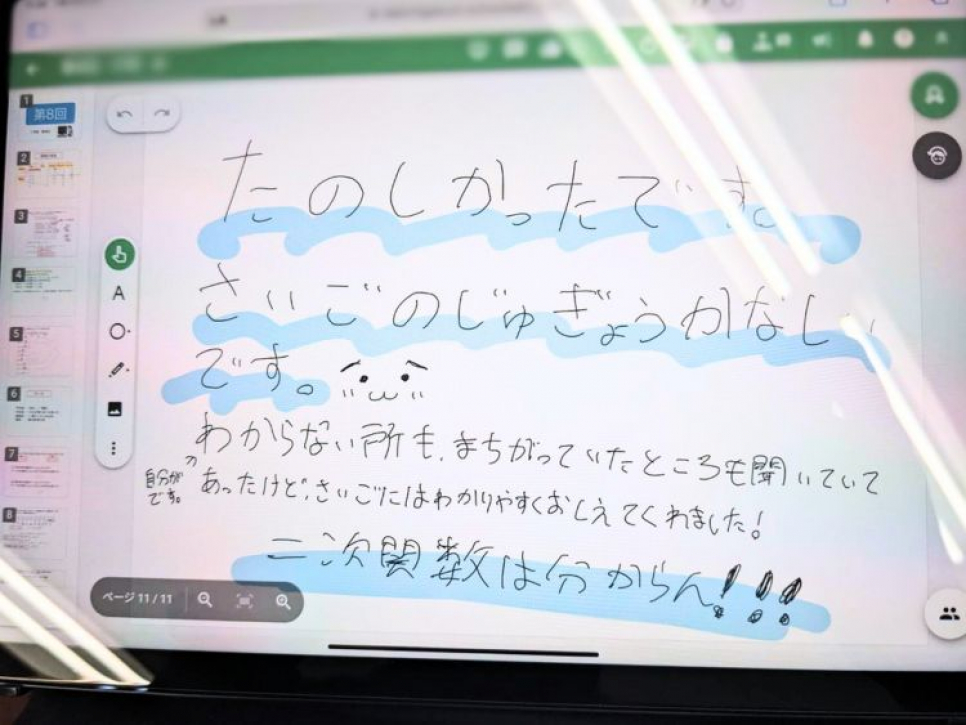 第8回
1
2
3
4
5
6
7
8
A
たのしかったです。
さいごのじゅぎょうかなしい
です。
わからない所も、まちがっていたところも聞いていて
自分が
です。
あったけど、さいごにはわかりやすくおしえてくれました!
二次関数は分からん!!!
ページ 11 / 11